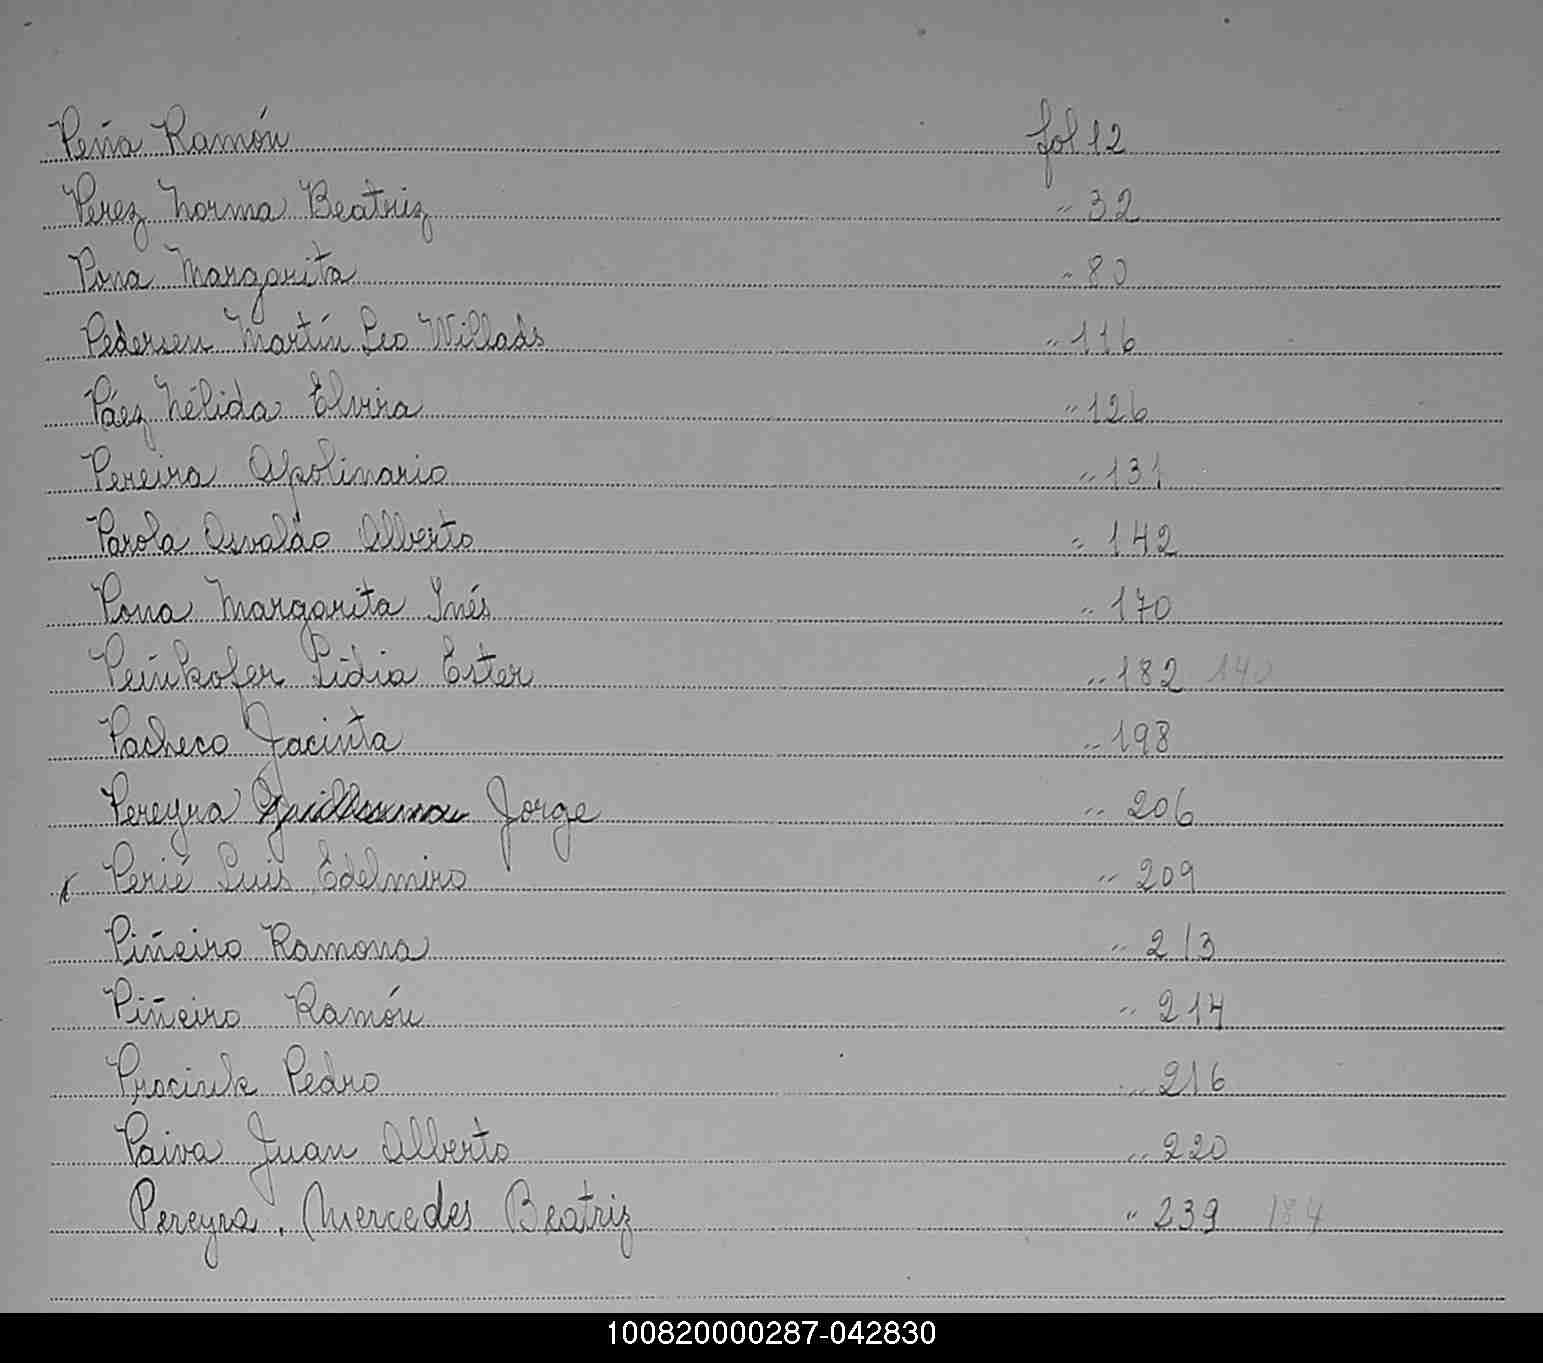 Peña Ramón fol 12
Perez Norma Beatriz " 32
Pona Margarita " 80
Pedersen Martín Leo Willads " 116
Páez Nélida Elvira " 126
Pereira Apolinario " 131
Parola Osvaldo Alberto " 142
Pona Margarita Inés " 170
Peinkofer Lidia Ester " 182 140
Pacheco Jacinta " 198
Pereyra Guillermo Jorge " 206
Perié Luis Edelmiro " 209
Piñeiro Ramona " 213
Piñeiro Ramón " 214
Prociuk Pedro " 216
Paiva Juan Alberto " 220
Pereyra, Mercedes Beatriz " 239 184
100820000287-042830